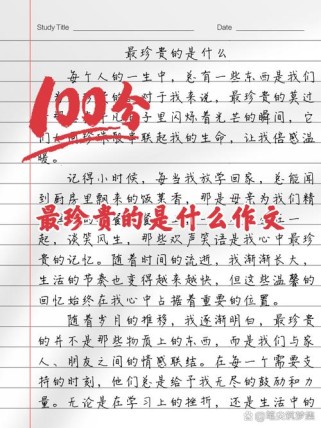 Study Title
Date
最珍贵的是什么
每个人的一生中，总有一些东西是我们
对于我来说，最珍贵的莫过
子里闪烁着光芒的瞬间，它
们 联起我的生命，让我倍感温
暖。
100分
记得小时候，每当我放学回家，总能闻
到厨房里飘来的饭菜香，那是母亲为我们精
最珍贵的是什么作文
起，谈笑风生，那些欢声笑语是我心中最珍
贵的记忆。随着时间的流逝，我渐渐长大，
生活的节奏也变得越来越快，但这些温馨的
回忆始终在我心中占据着重要的位置。
随着岁月的推移，我逐渐明白，最珍贵
的并不是那些物质上的东西，而是我们与家
人、朋友之间的情感联结。在每一个需要支
持的时刻，他们总是给予我无尽的鼓励和力
量。无论是在学习上的挫折，还是生活中的